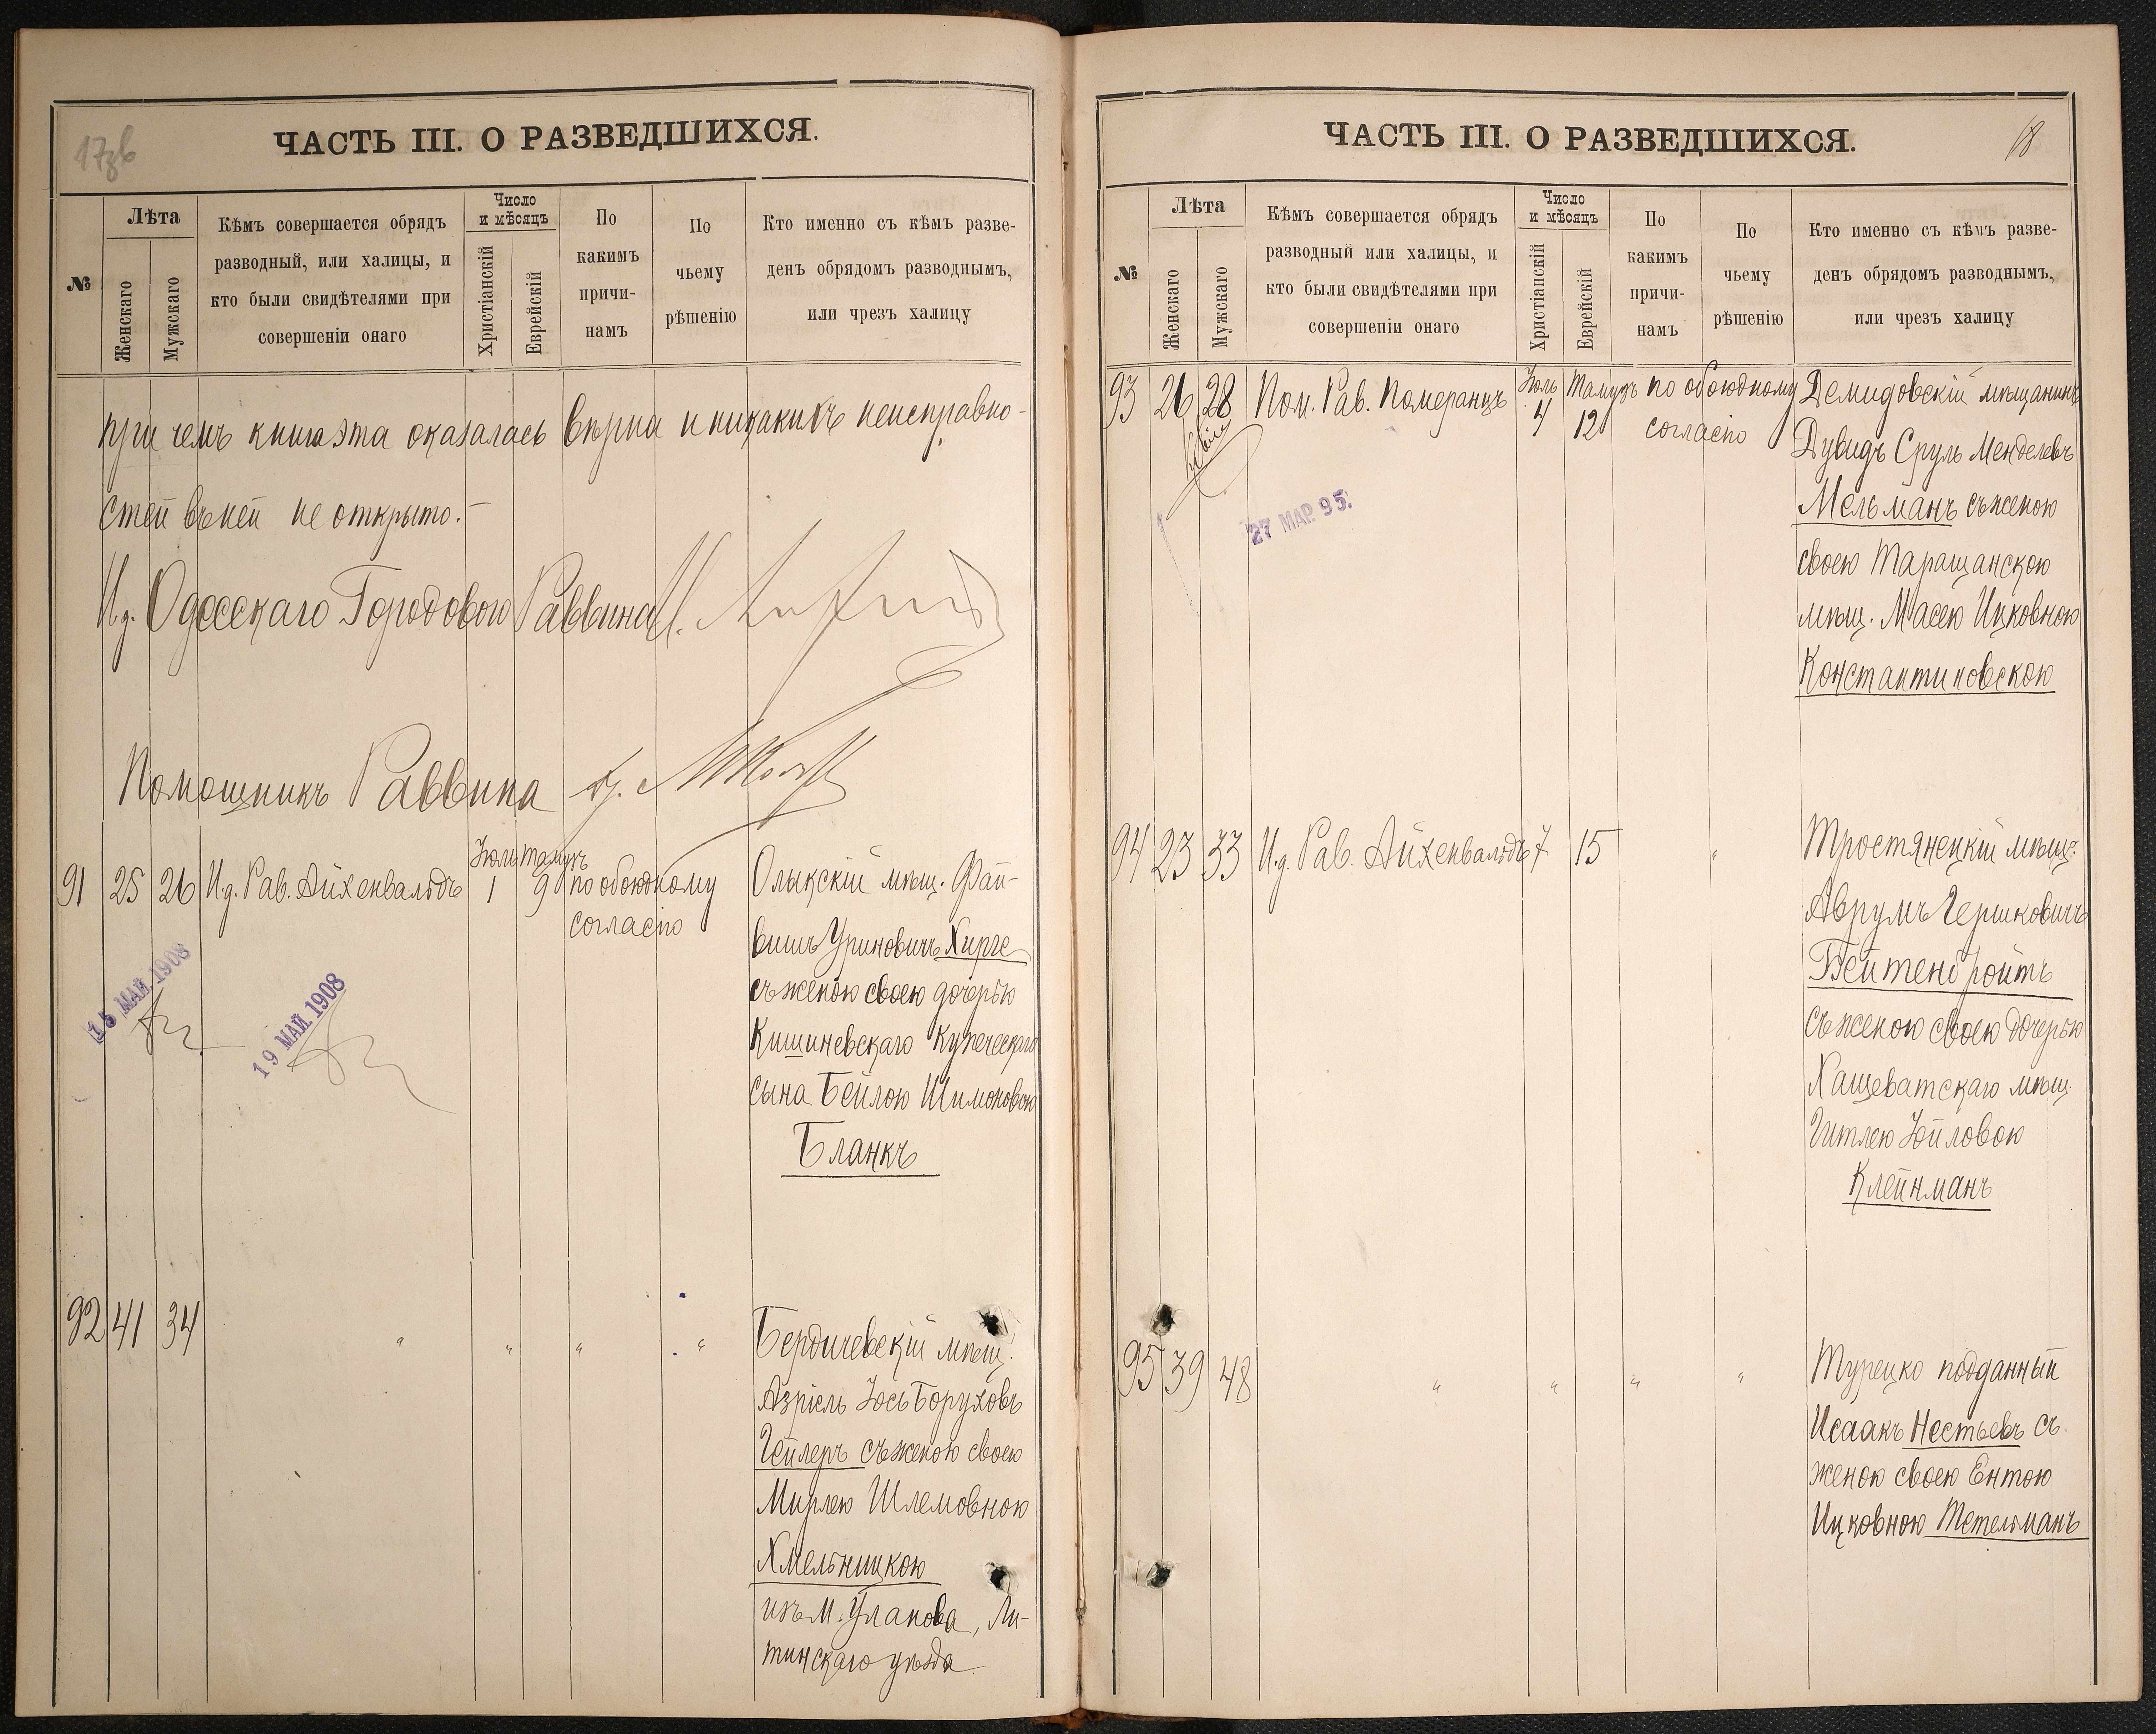 17зв
ЧАСТЬ III. О РАЗВЕДШИХСЯ.
№
Лѣта
Женскаго
Мужскаго
Кѣмъ совершается обрядъ
разводный, или халицы, и
кто были свидѣтелями при
совершеніи онаго
Число
и мѣсяцъ
Христіанскій
Еврейскій
По
какимъ
причи-
намъ
По
чьему
рѣшенію
Кто именно съ кѣмъ разве-
денъ обрядомъ разводнымъ,
или чрезъ халицу
при чемъ книга эта оказалась вѣрна и никакихъ неисправно-
стей въ ней не открыто.-
И.д. Одесскаго Городового Раввина
Помощникъ Раввина
91 25 26 И.д. Рав. Айхенвальдъ Іюль 1 Тамузъ 9 по обоюдному
согласію
Олыкскій мѣщ. Фай-
вишъ Уриновичъ Хирге
съ женою своею дочерью
Кишиневскаго купеческаго
сына Бейлою Шимоновою
Бланкъ
15 МАЙ 1908
19 МАЙ 1908
92 41 34 " " " "
Бердичевскій мѣщ.
Азріель Іось Боруховъ
Гейлеръ съ женою своею
Мирлею Шлемовною
Хмельницкою
изъ М. Уланова, Ли-
тинскаго уѣзда
18
ЧАСТЬ III. О РАЗВЕДШИХСЯ.
№
Лѣта
Женскаго
Мужскаго
Кѣмъ совершается обрядъ
разводный или халицы, и
кто были свидѣтелями при
совершеніи онаго
Число
и мѣсяцъ
Христіанскій
Еврейскій
По
какимъ
причи-
намъ
По
чьему
рѣшенію
Кто именно съ кѣмъ разве-
денъ обрядомъ разводнымъ,
или чрезъ халицу
93 26 28 Пом. Рав. Померанцъ Іюль 4 Тамузъ 12 по обоюдному
согласію
Демидовскій мѣщанинъ
Дувидъ Сруль Менделевъ
Мельманъ съ женою
своею Таращанскою
мѣщ. Масею Ицковною
Константиновскою
27 МАР. 95.
94 23 33 И.д. Рав. Айхенвальдъ 7 15 "
Тростянецкій мѣщ.
Аврумъ Гершковичъ
Бейтенбройтъ
съ женою своею дочерью
Хащеватскаго мѣщ.
Гитлею Іойловою
Клейнманъ
95 39 48 " " " "
Турецко подданный
Исаакъ Нестьевъ съ
женою своею Ентою
Ицковною Тетельманъ